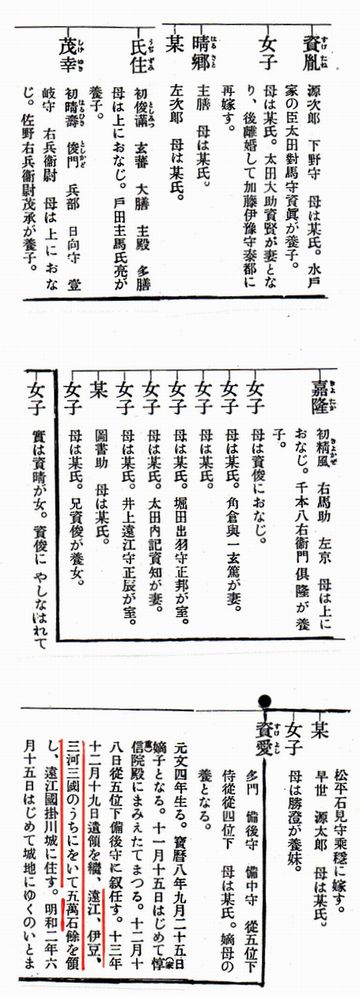 資胤 すけたね
源次郎 下野守 母は某氏。水戸
家の臣太田對馬守資眞が養子。
女子
母は某氏。太田大助資賢が妻とな
り、後離婚して加藤伊豫守泰都に
再嫁す。
晴郷 はるさと
主膳 母は某氏。
某
左次郎 母は某氏。
氏住 うぢずみ
初俊滿 玄蕃 大膳 主殿 多膳
母は上におなじ。戸田主馬氏亮が
養子。
茂幸 しげゆき
初晴壽 俊門 としかど 兵部 日向守 壹
岐守 右兵衞尉 母は上におな
じ。佐野右兵衞尉茂承が養子。
嘉隆 よしたか
初精風 きよかぜ 右馬助 左京 母は上に
おなじ。千本八右衞門倶隆が養
子。
女子
母は資俊におなじ。
女子
母は某氏。角倉與一玄篤が妻。
女子
母は某氏。
女子
母は某氏。堀田出羽守正邦が室。
女子
母は某氏。太田内記資知が妻。
女子
母は某氏。井上遠江守正辰が室。
某
圖書助 母は某氏。
女子
母は某氏。兄資俊が養女。
女子
實は資晴が女。資俊に やしなはれて
松平石見守乘穩に嫁す。
某
早世 源太郎 母は某氏。
女子
母は勝澄が養妹。
資愛 すけよし
多門 備後守 備中守 從五位下
侍從從四位下 母は某氏。嫡母の
養となる。
元文四年生る。寶曆八年九月二十五日
嫡子となる。十一月十五日はじめて惇
信院殿にまみえたてまつる。十二月十
八日從五位下備後守に叙任す。十三年
十二月十九日遺領を繼、遠江、伊豆、
三河三國のうちにをいて五萬石餘を領
し、遠江國掛川城に住す。明和二年六
月十五日はじめて城地にゆくのいとま